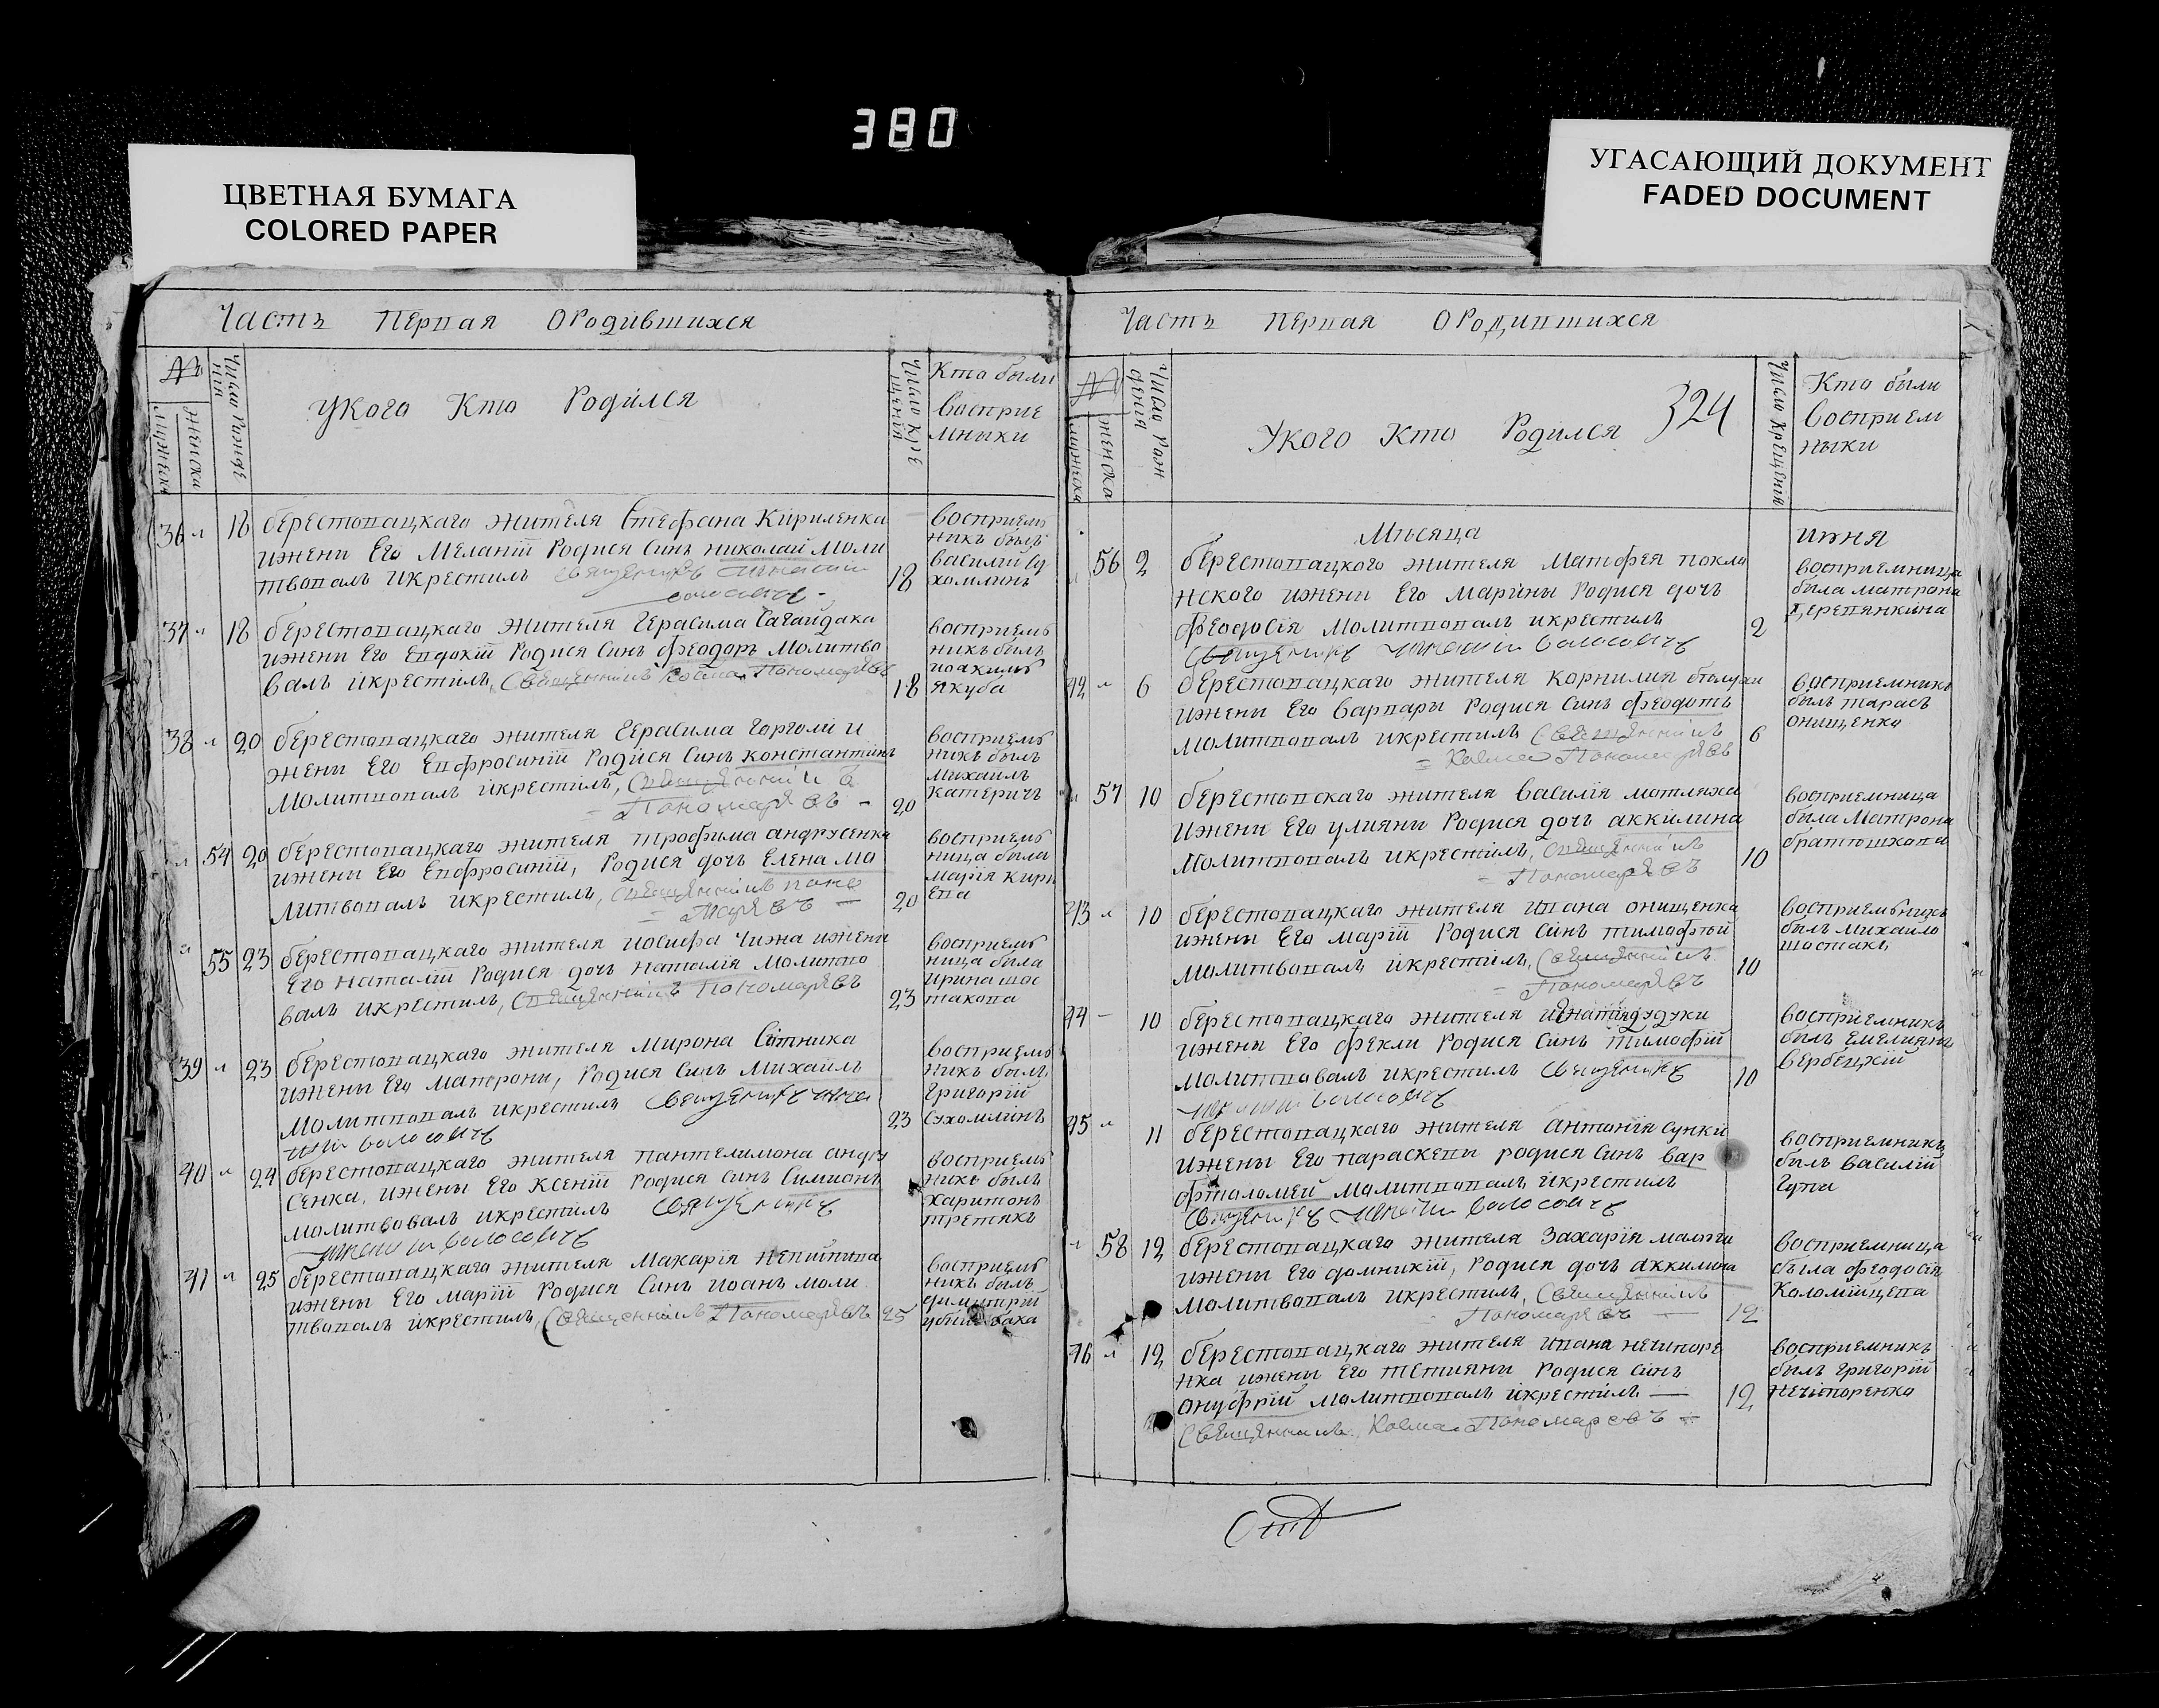 380
ЦВЕТНАЯ БУМАГА
COLORED PAPER
УГАСАЮЩИЙ ДОКУМЕНТ
FADED DOCUMENT
Часть Первая О Родившихся
№
Мужеска
Женска
Число Рожде
нія
У Кого Кто Родился
Число Кре
щенія
Кто были
Восприе
мныки
36 18 берестовацкаго жителя Стефана Кириленка
ижени Его Меланіи Родися Синъ Николай Моли
твовалъ икрестилъ священикъ
18
восприем
никъ былъ
василий Су
хомлинъ
37 18 берестовацкаго жителя Герасима Сагайдака
ижени Его Евдокіи Родися Синъ феодоръ Молитво
валъ икрестилъ, Священникъ Косма Пономаревъ
18
восприем
никъ былъ
иоакимъ
якуба
38 20 берестовацкаго жителя Герасима Горголи и
жени Его Евфросиніи Родися Синъ константинъ
Молитвовалъ икрестилъ, Священникъ
Пономаревъ
20
восприем
никъ былъ
михаилъ
катеричъ
54 20 берестовацкаго жителя трофима андрусенка
ижени Его Евфросиніи, Родися дочъ Елена Мо
литвовалъ икрестилъ, Священникъ Поно
маревъ
20
восприем
ница была
марія кири
ева
55 23 берестовацкаго жителя иосифа Чижа ижени
Его Наталіи Родися дочъ Наталія Молитво
валъ икрестилъ, Священникъ Пономаревъ
23
восприем
ница была
ирина шос
такова
39 23 берестовацкаго жителя Мирона Ситника
ижены Его Матрони, Родися Синъ Михаилъ
Молитвовалъ икрестилъ Священикъ игна
тий Волосовичъ
23
восприем
никъ былъ
Григорій
Сухомлинъ
40 24 берестовацкаго жителя пантелимона андру
сенка, ижены Его Ксеніи Родися Синъ Симионъ
молитвовалъ икрестилъ Священикъ
игнатий Волосовичъ
восприем
никъ былъ
харитонъ
третякъ
41 25 берестовацкаго жителя Макарія Непийпива
ижены Его Маріи Родися Синъ иоанъ моли
твовалъ икрестилъ, Священникъ Пономаревъ
25
восприем
никъ былъ
димитрій
Часть Первая О Родившихся
№
Мужеска
Женска
Число Рож
дения
У Кого Кто Родился
324
Число Крещения
Кто были
Восприем
ныки
Мѣсяца июня
56 2 берестовацкого жителя Матфея покла
нского ижени Его Марины Родися дочъ
Феодосія Молитвовалъ икрестилъ
Священикъ игнатий Волосовичъ
2
восприемница
была матрона
Деревянкина
42 6 берестовацкаго жителя Корнилия
ижены Его Варвары Родися Синъ феодотъ
Молитвовалъ икрестилъ Священникъ
Косма Пономаревъ
6
восприемникъ
былъ тарасъ
онищенко
57 10 берестовскаго жителя Василія мотляха
ижени Его улияни Родися дочъ аккилина
Молитвовалъ икрестилъ, Священникъ
Пономаревъ
10
восприемница
была Матрона
братюшкова
43 10 берестовацкаго жителя ивана онищенка
ижены Его маріи Родися Синъ тимофтий
Молитвовалъ икрестилъ, Священникъ
Пономаревъ
10
восприемникъ
былъ Михаило
шостакъ
44 10 берестовацкаго жителя игнатия дудуки
ижены Его фекли Родися Синъ тимофій
Молитвовалъ икрестилъ Священикъ
игнатий Волосовичъ
10
восприемникъ
былъ Емелиянъ
вербецкій
45 11 берестовацкаго жителя антонія сунки
ижены Его параскевы родися Синъ вар
фталомей Молитвовалъ икрестилъ
Священикъ игнатий Волосовичъ
восприемникъ
былъ Василій
58 12 берестовацкаго жителя Захарія
ижены Его домникіи, Родися дочъ аккилина
Молитвовалъ икрестилъ, Священникъ
Пономаревъ
12
восприемница
была феодосія
Коломийцева
46 12 берестовацкаго жителя ивана нечипоре
нка ижены Его тетияни Родися Синъ
онуфрій молитвовалъ икрестилъ
Священникъ, Косма Пономаревъ
12
восприемникъ
былъ Григорій
Нечипоренко